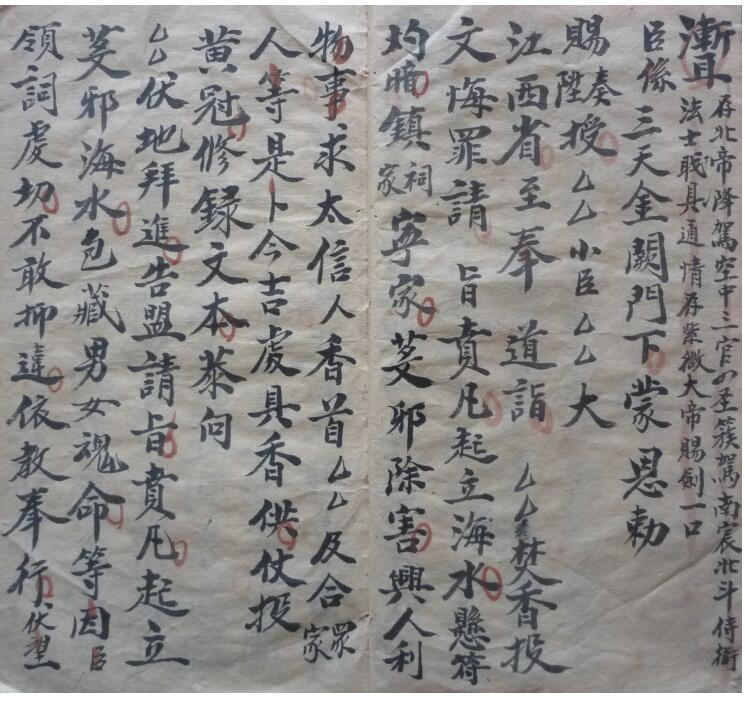 存北帝降駕空中三官四聖簇駕南宸北斗侍衛
法士職具通情存紫微大帝賜劍一口
臣係三天金闕門下蒙恩勅
賜奏陞授厶厶小臣厶厶大
江西省至奉道詣厶厶焚香投
文悔罪請旨賁凡起立海水懸符
鎮祠家寧家芟邪除害興人利
物事求太信人香首厶厶及合家眾
人等是卜今吉處具香供仗投
黄冠修録文本恭向
厶厶伏地拜進告盟請旨賁凡起立
芟邪海水包藏男女魂命等因臣
領詞虔切不敢抑違依教奉行伏望